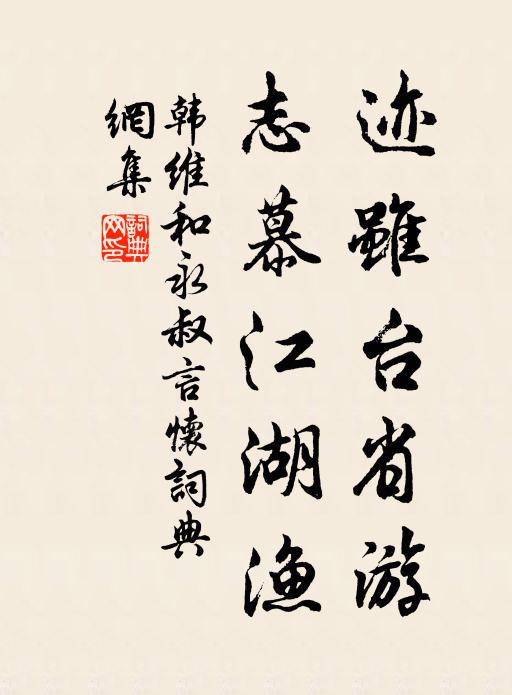 迹雖台省游
志慕江湖渔
韩维和永叔言懷詞典
網集
詞典
网印